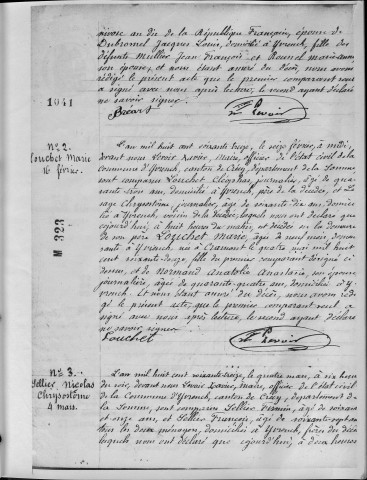 nivose an dix de la République Française, épouse de
Dubromel Jacques Louis, domicilié à Yvrench, fille des
défunts Mullier Jean François et Roussel Marie
son épouse et nous étant assuré du décès, nous avons
rédigé le présent acte que le premier comparant
a signé avec nous après lecture, le second ayant déclaré
ne savoir signer.
1041
N° 2.
Louchet Marie
16 février.
L'an mil huit cent soixante treize, le seize février, à midi,
devant nous Xavier, Maire, officier de l'état civil de la
Commune d'Yvrench, canton de Crécy, département de la Somme,
sont comparus Louchet journalier, âgé de
quarante trois ans, domicilié à Yvrench, père de la décédée, et
Chrysostome, journalier, âgé de soixante dix ans, domicilié
à Yvrench, voisin de la décédée, lesquels nous ont déclaré que
aujourd'hui, à huit heures du matin, est décédée en la demeure
de son père Louchet Marie, âgée de neuf mois, demeurante
à Yvrench, née à Cramont le quatre mai mil huit
cent soixante douze, fille du premier comparant désigné ci
dessus, et de Normand Anatolie Anastasie, son épouse
journalière, âgée de quarante quatre ans, domiciliée à
Yvrench. Et nous étant assuré du décès, nous avons rédigé
le présent acte que le premier comparant a
signé avec nous après lecture, le second ayant déclaré
ne savoir signer
Louchet
M 323
N° 3.
Sellier Nicolas
Chrysostome
4 mars.
L'an mil huit cent soixante treize, le quatre mars, à six heures
du soir, devant nous Xavier, maire, officier de l'état civil
de la Commune d'Yvrench, canton de Crécy, département de
la Somme, sont comparus Sellier Firmin, âgé de soixante
et onze ans, et Sellier François, âgé de soixante
ans, tous les deux domiciliés à Yvrench, frères du décédé
lesquels nous ont déclaré que aujourd'hui, à deux heures